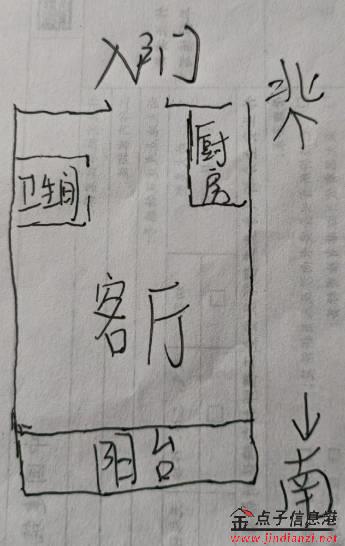 入户门
北
厨房
卫生间
客厅
阳台
南
金点子信息港
www.jindianzi.net